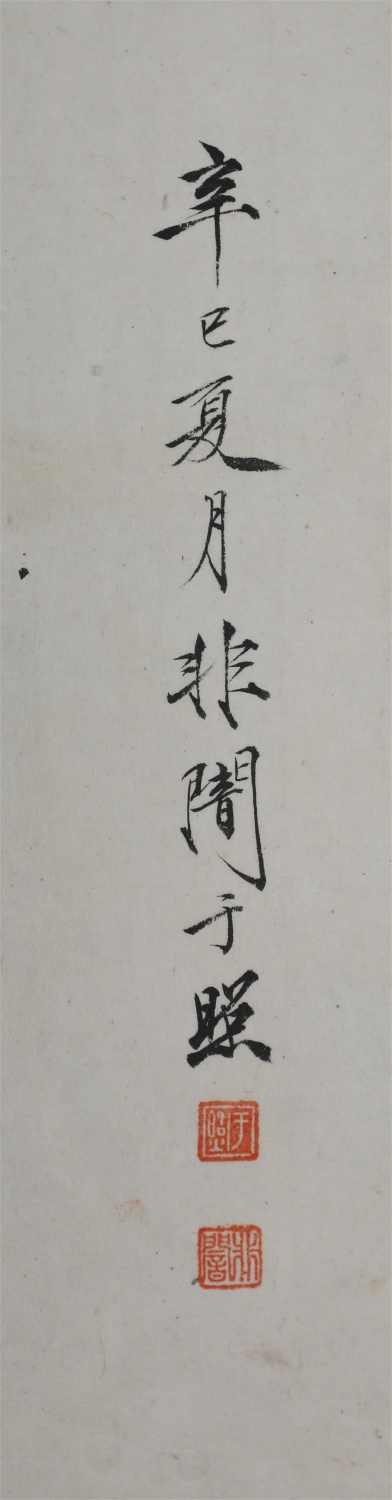 辛巳夏月非闇于照
于照
非闇